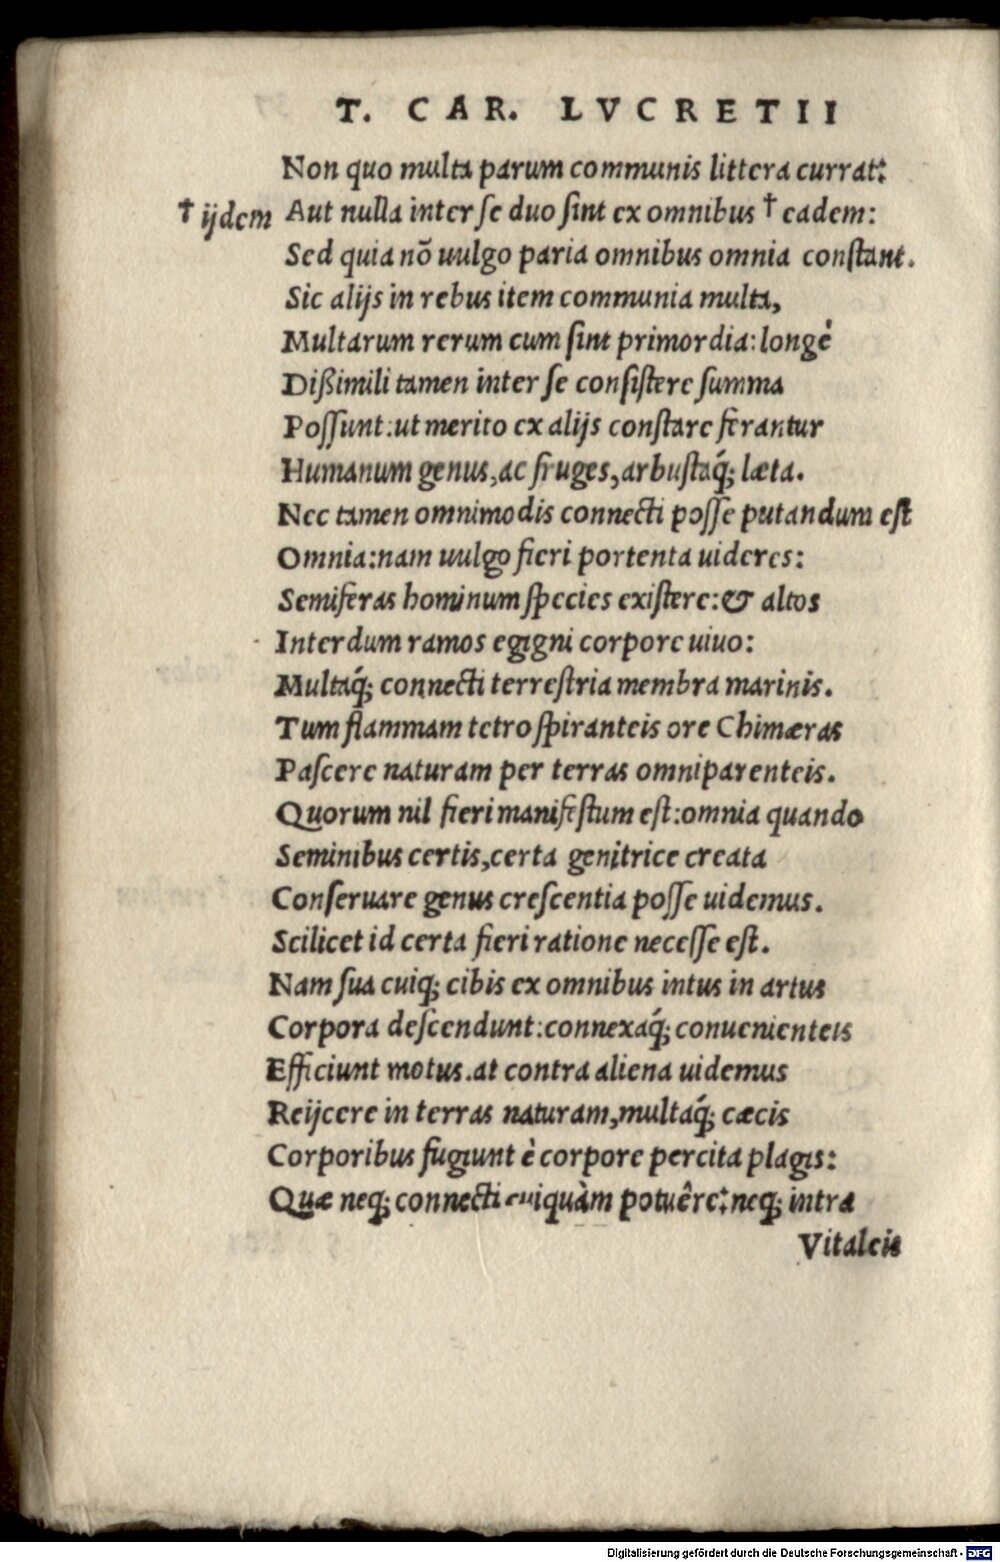 T. CAR. LVCRETII
Non quo multa parum communis littera currat:
† ijdem Aut nulla inter se duo sint ex omnibus † eadem:
Sed quia nō uulgo paria omnibus omnia constant.
Sic alijs in rebus item communia multa,
Multarum rerum cum sint primordia: longè
Dißimili tamen inter se consistere summa
Possunt: ut merito ex alijs constare ferantur
Humanum genus, ac fruges, arbustaq́; læta.
Nec tamen omnimodis connecti posse putandum est
Omnia: nam uulgo fieri portenta uideres:
Semiferas hominum species existere: & altos
Interdum ramos egigni corpore uiuo:
Multaq́; connecti terrestria membra marinis.
Tum flammam tetro spiranteis ore Chimæras
Pascere naturam per terras omniparenteis.
Quorum nil fieri manifestum est: omnia quando
Seminibus certis, certa genitrice creata
Conseruare genus crescentia posse uidemus.
Scilicet id certa fieri ratione necesse est.
Nam sua cuiq; cibis ex omnibus intus in artus
Corpora descendunt: connexaq́; conuenienteis
Efficiunt motus. at contra aliena uidemus
Reijcere in terras naturam, multaq́; cæcis
Corporibus fugiunt è corpore percita plagis:
Quæ neq; connecti cuiquàm potuêre: neq; intra
Vitaleis
Digitalisierung gefördert durch die Deutsche Forschungsgemeinschaft - DFG